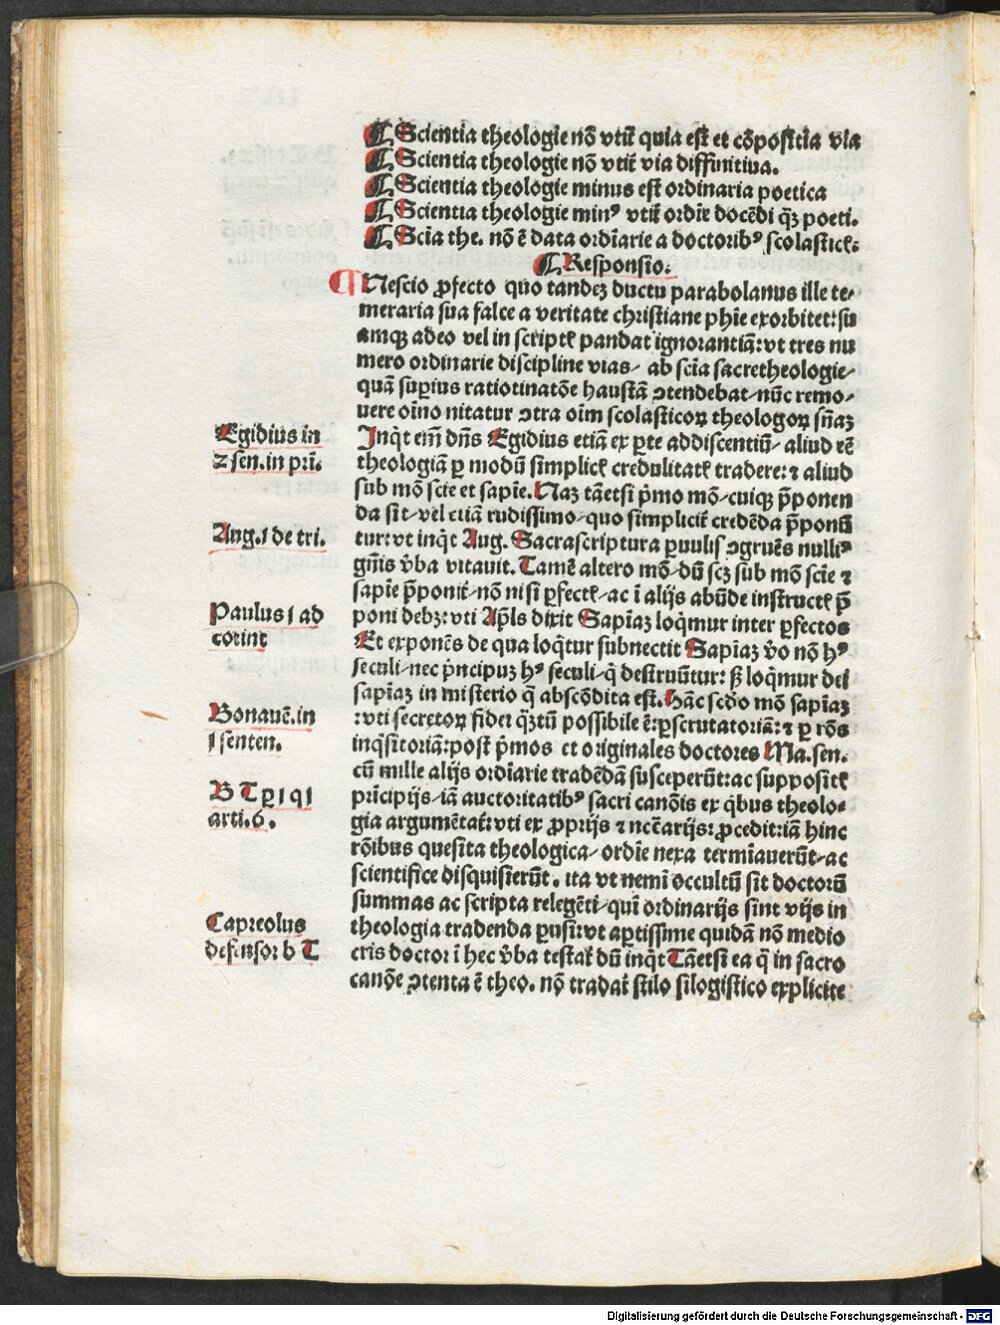 ¶ Scientia theologie nō vtit᷑ quia est et cōpositia via
¶ Scientia theologie nō vtit᷑ via diffinitiua.
¶ Scientia theologie minus est ordinaria poetica
¶ Scientia theologie minꝰ vtit᷑ ordīe docēdi qꝫ̄ poeti.
¶ Scīa the. nō ē data ordīarie a doctoribꝰ scolasticꝭ.
¶ Responsio.
¶ Nescio ꝓfecto quo tandeꝫ ductu parabolanus ille te⸗
meraria sua falce a veritate christiane phīe exorbitet: su
amqꝫ adeo vel in scriptꝭ pandat ignorantiā: vt tres nu
mero ordinarie discipline vias/ ab scīa sacretheologie/
quā suꝑius ratiotinatōe haustā ꝯtendebat/ nūc remo⸗
uere oīno nitatur ꝯtra oīm scolasticoꝝ theologoꝝ sn̄aꝫ
Inq̇t em̄ dn̄s Egidius etiā ex ꝑte addiscentiū/ aliud rē
theologiā ꝑ modū simplicꝭ credulitatꝭ tradere: ⁊ aliud
sub mō scīe et sapīe. Naꝫ tāetsi p̄mo mō/ cuiqꝫ p̄ponen
da sit/ vel etiā rudissimo/ quo simplicit᷑ credēda p̄ponū
tur: vt inq̇t Aug. Sacrascriptura ꝑuulis ꝯgruēs nulliꝰ
gn̄is v̄ba vitauit. Tamē altero mō/ dū scꝫ sub mō scīe ⁊
sapīe p̄ponit᷑/ nō nisi ꝑfectꝭ/ ac ī alijs abūde instructꝭ p̄
poni debꝫ: vti Ap̄ls dixit Sapīaꝫ loq̇mur inter ꝑfectos
Et exponēs de qua loq̇tur subnectit Sapīaꝫ v̄o nō hꝰ
seculi/ nec p̄ncipuꝫ hꝰ seculi/ q̄ destruūtur: sꝫ loq̇mur dei
sapīaꝫ in misterio q̄ abscōdita est. Hāc secd̄o mō sapīaꝫ
: vti secretoꝝ fidei qꝫ̄tū possibile ē: ꝑscrutatoriā: ⁊ ꝑ rōs
inq̇sitoriā: post p̄mos et originales doctores Ma. sen.
cū mille alijs ordīarie tradēdā susceperūt: ac suppositꝭ
prīcipijs/ iā auctoritatibꝰ sacri canōis ex q̇bus theolo⸗
gia argumētat᷑: vti ex ꝓprijs ⁊ nccārijs: ꝓcedit: iā hinc
rōibus quesita theologica/ ordīe nexa termīauerūt/ ac
scientifice disquisierūt. ita vt nemī occultū sit doctorū
summas ac scripta relegēti/ quī ordinarijs sint vijs in
theologia tradenda ꝑusi: vt aꝑtissime quidā nō medio
cris doctor ī hec v̄ba testat᷑ dū inq̇t Tāetsi ea q̄ in sacro
canōe ꝯtenta ē theo. nō tradat᷑ stilo silogistico explicite
Egidius in
2 sen. in pri.
Aug. 1 de tri.
Paulus 1 ad
corint
Bonauē. in
1 senten.
B T p 1 q 1
arti. 6.
Capreolus
defensor b T
Digitalisierung gefördert durch die Deutsche Forschungsgemeinschaft - DFG